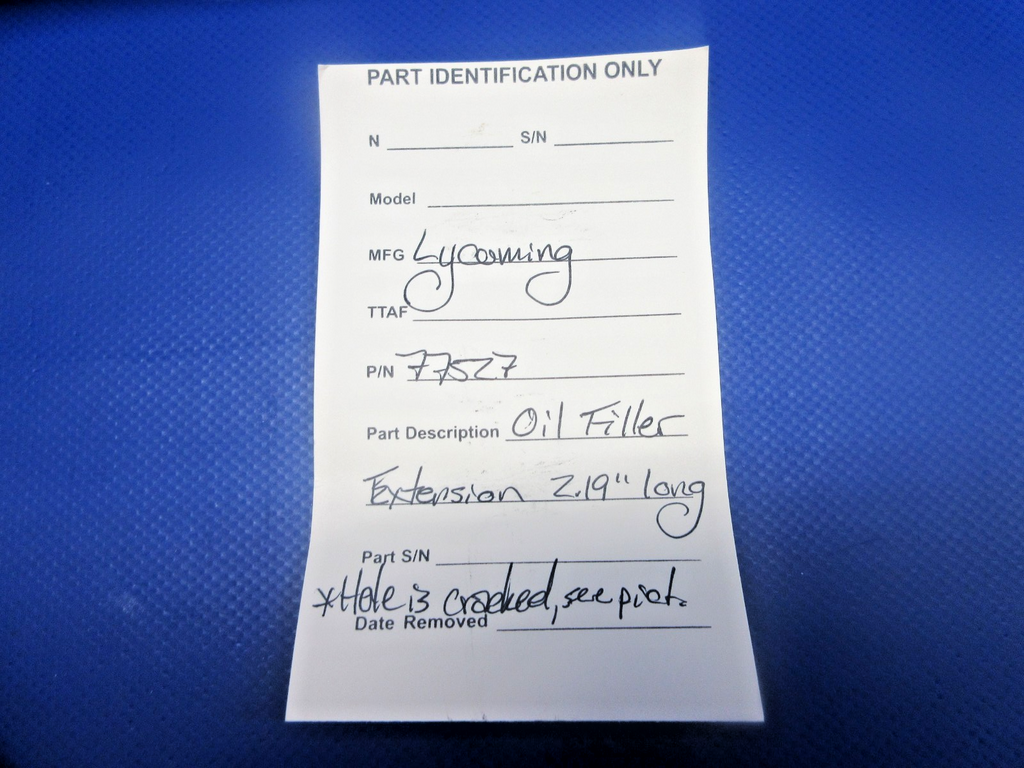 PART IDENTIFICATION ONLY
N S/N
Model
MFG Lycoming
TTAF
P/N 77527
Part Description Oil Filler
Extension 2.19" long
Part S/N
*Hole is cracked, see pict.
Date Removed